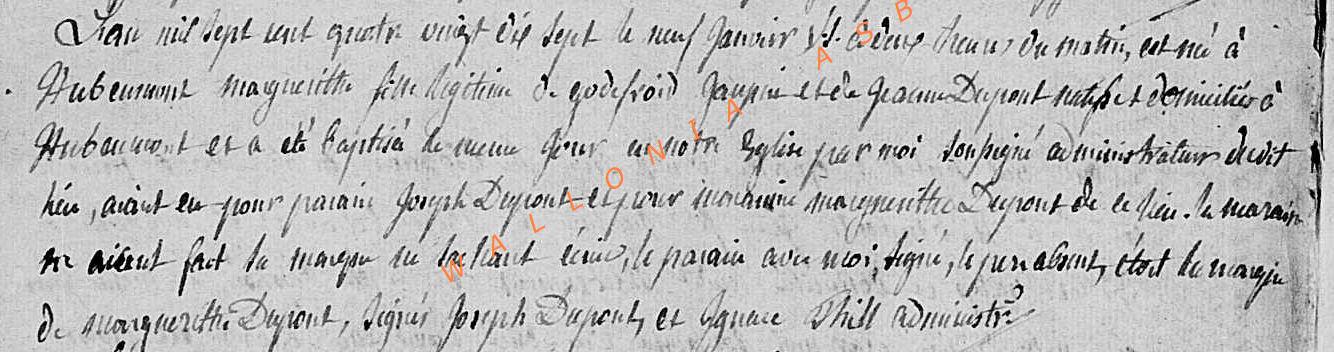 L'an mil sept cent quatre vingt dix sept le neuf Janvier v.s. à deux heures du matin, est né à
Hubermont margueritte fille légitime de godefroid Jaupin et de Jeanne Dupont natifs et domiciliés à
Hubermont et a été baptisé le meme jour en notre Eglise par moi soussigné administrateur dudit
lieu, aiant eu pour parain Joseph Dupont et pour maraine margueritte Dupont de ce lieu. la maraine
ne aient fait sa marque ne sachant écrire, le parain avec moi, signé, le pere absent, étoit la marque
de margueritte Dupont, signés Joseph Dupont, et Ignace Thill administr
WALLONIA ASB